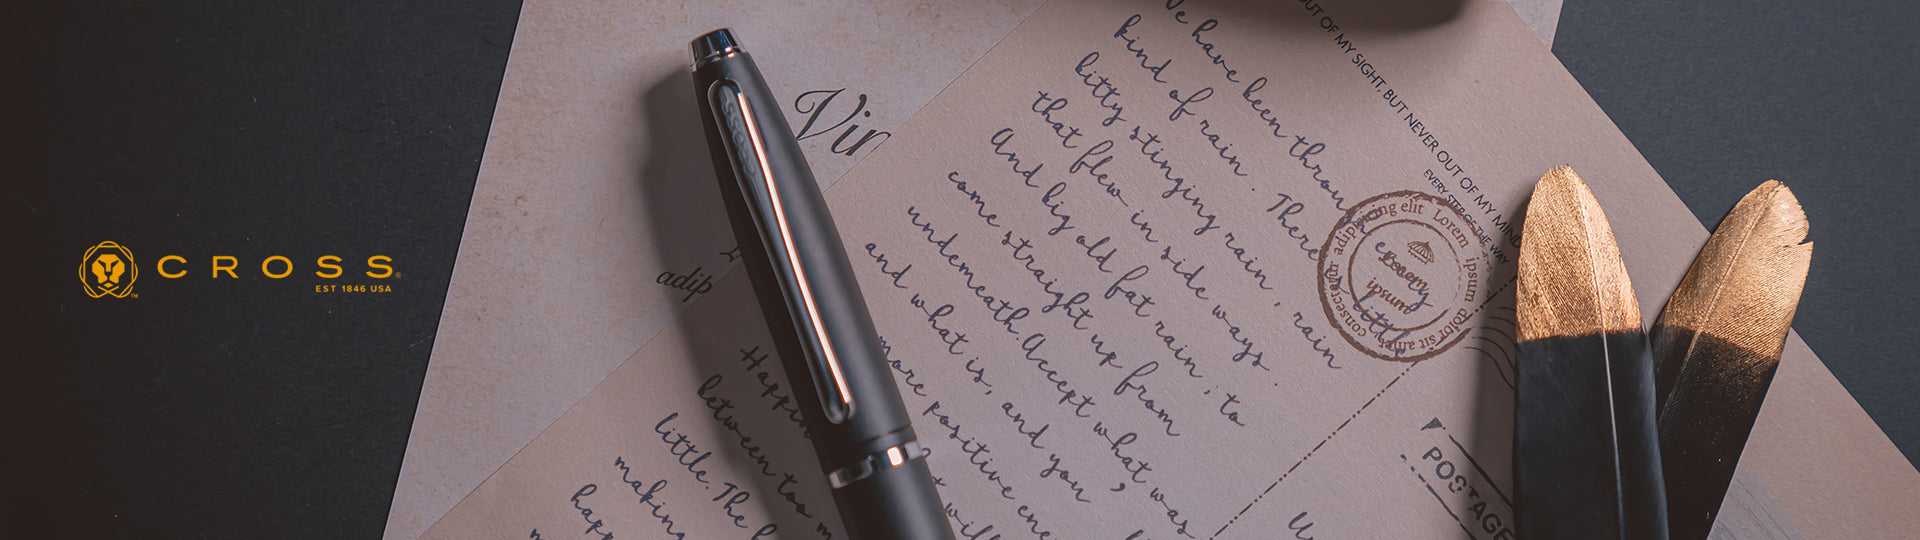 CROSS
EST 1846 USA
TM
Vir
adip
We have been through
kind of rain. There
bitty stinging rain, rain
that flew in side ways.
And big old fat rain, to
come straight up from
underneath. Accept what was
and what is, and you
more positive ene
will
Happin
between too m
little. The
making
happ
OUT OF MY SIGHT, BUT NEVER OUT OF MY MIND
EVERY STEP OF THE WAY
consectetur adipiscing elit Lorem ipsum dolor sit amet
Lorem
ipsum
little
POSTAGE